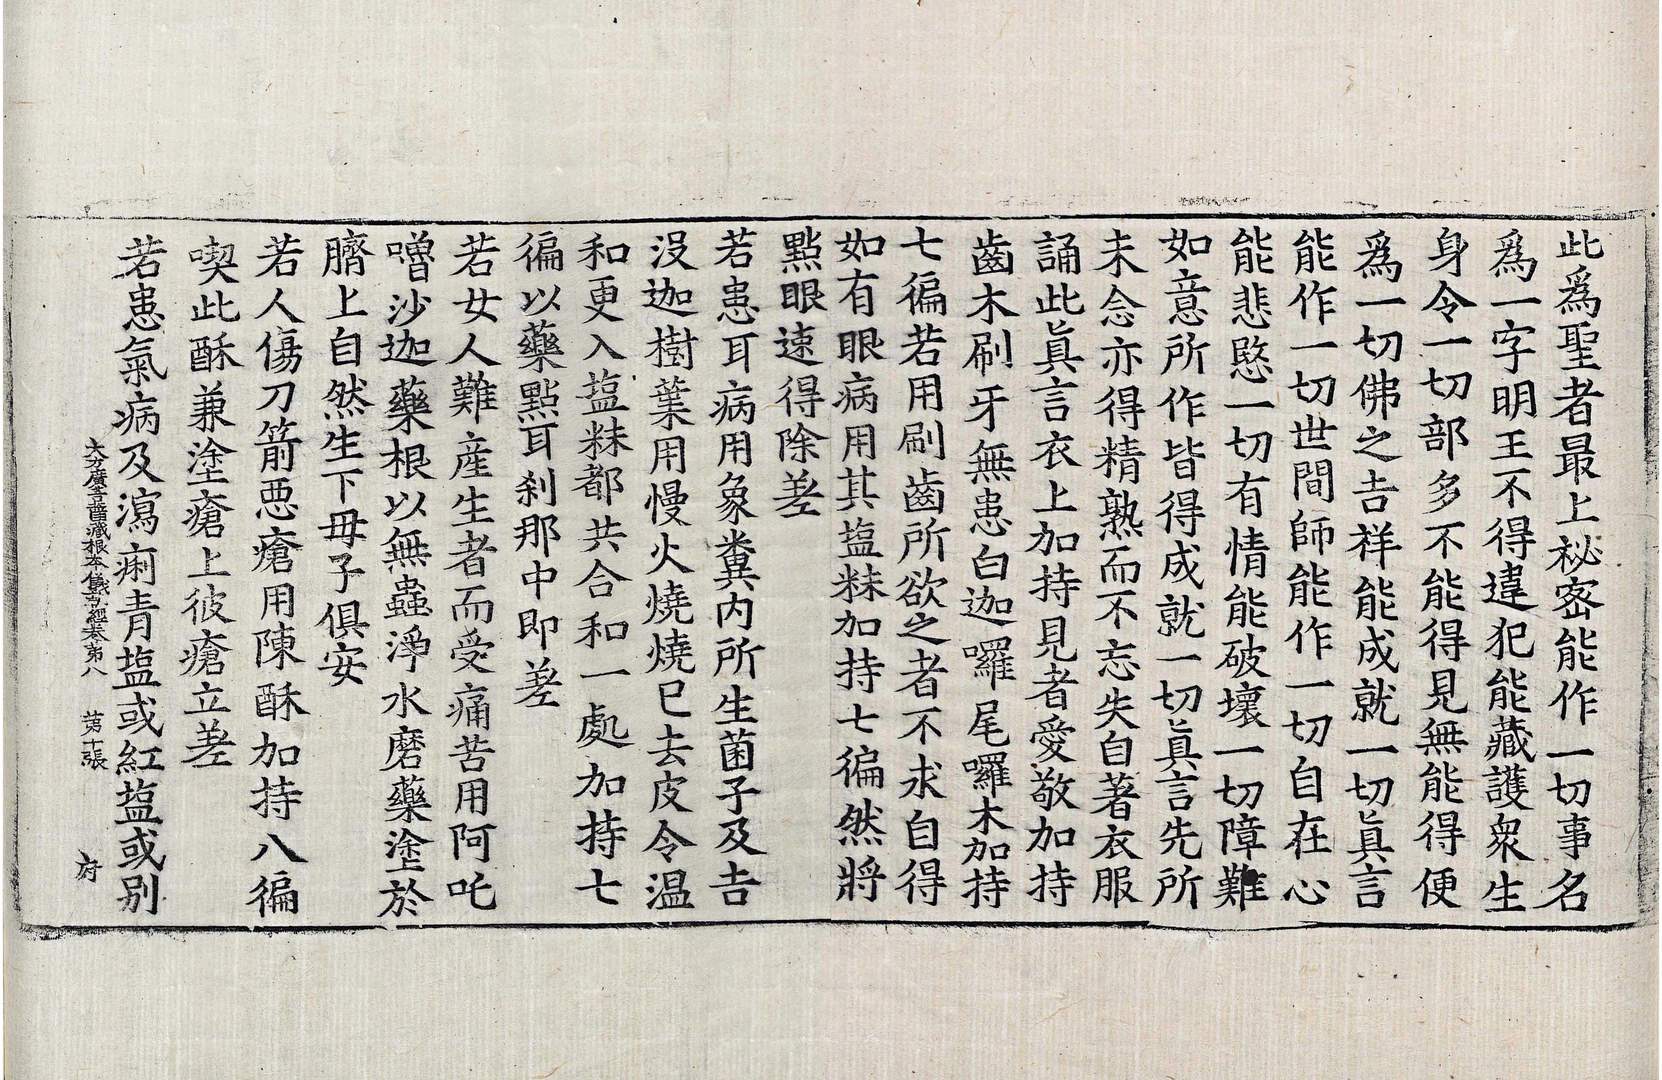 此爲聖者最上祕密能作一切事名
爲一字明王不得違犯能藏護衆生
身令一切部多不能得見無能得便
爲一切佛之吉祥能成就一切眞言
能作一切世間師能作一切自在心
能悲愍一切有情能破壞一切障難
如意所作皆得成就一切眞言先所
未念亦得精熟而不忘失自著衣服
誦此眞言衣上加持見者愛敬加持
齒木刷牙無患白迦囉尾囉木加持
七徧若用刷齒所欲之者不求自得
如有眼病用其塩䊳加持七徧然將
點眼速得除差
若患耳病用象糞内所生菌子及吉
没迦樹葉用慢火燒燒巳去皮令温
和更入塩䊳都共合和一處加持七
徧以藥點耳刹那中即差
若女人難産生者而受痛苦用阿吒
嚕沙迦藥根以無蟲淨水磨藥塗於
臍上自然生下毋子俱安
若人傷刀箭惡瘡用陳酥加持八徧
喫此酥兼塗瘡上彼瘡立差
若患氣病及瀉痢青塩或紅塩或别
大方廣菩薩藏根本儀軌經卷第八 第十張 府